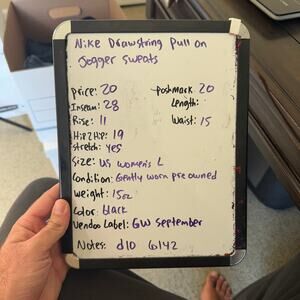 Nike Drawstring Pull on
Jogger Sweats
price: 20
poshmark 20
Inseam: 28
Length:
Rise: 11
Waist: 15
Hip2Hip: 19
Stretch: yes
Size: US women's L
Condition: Gently worn pre owned
weight: 15oz
Color: black
Vendoo Label: GW September
Notes: d10 6142